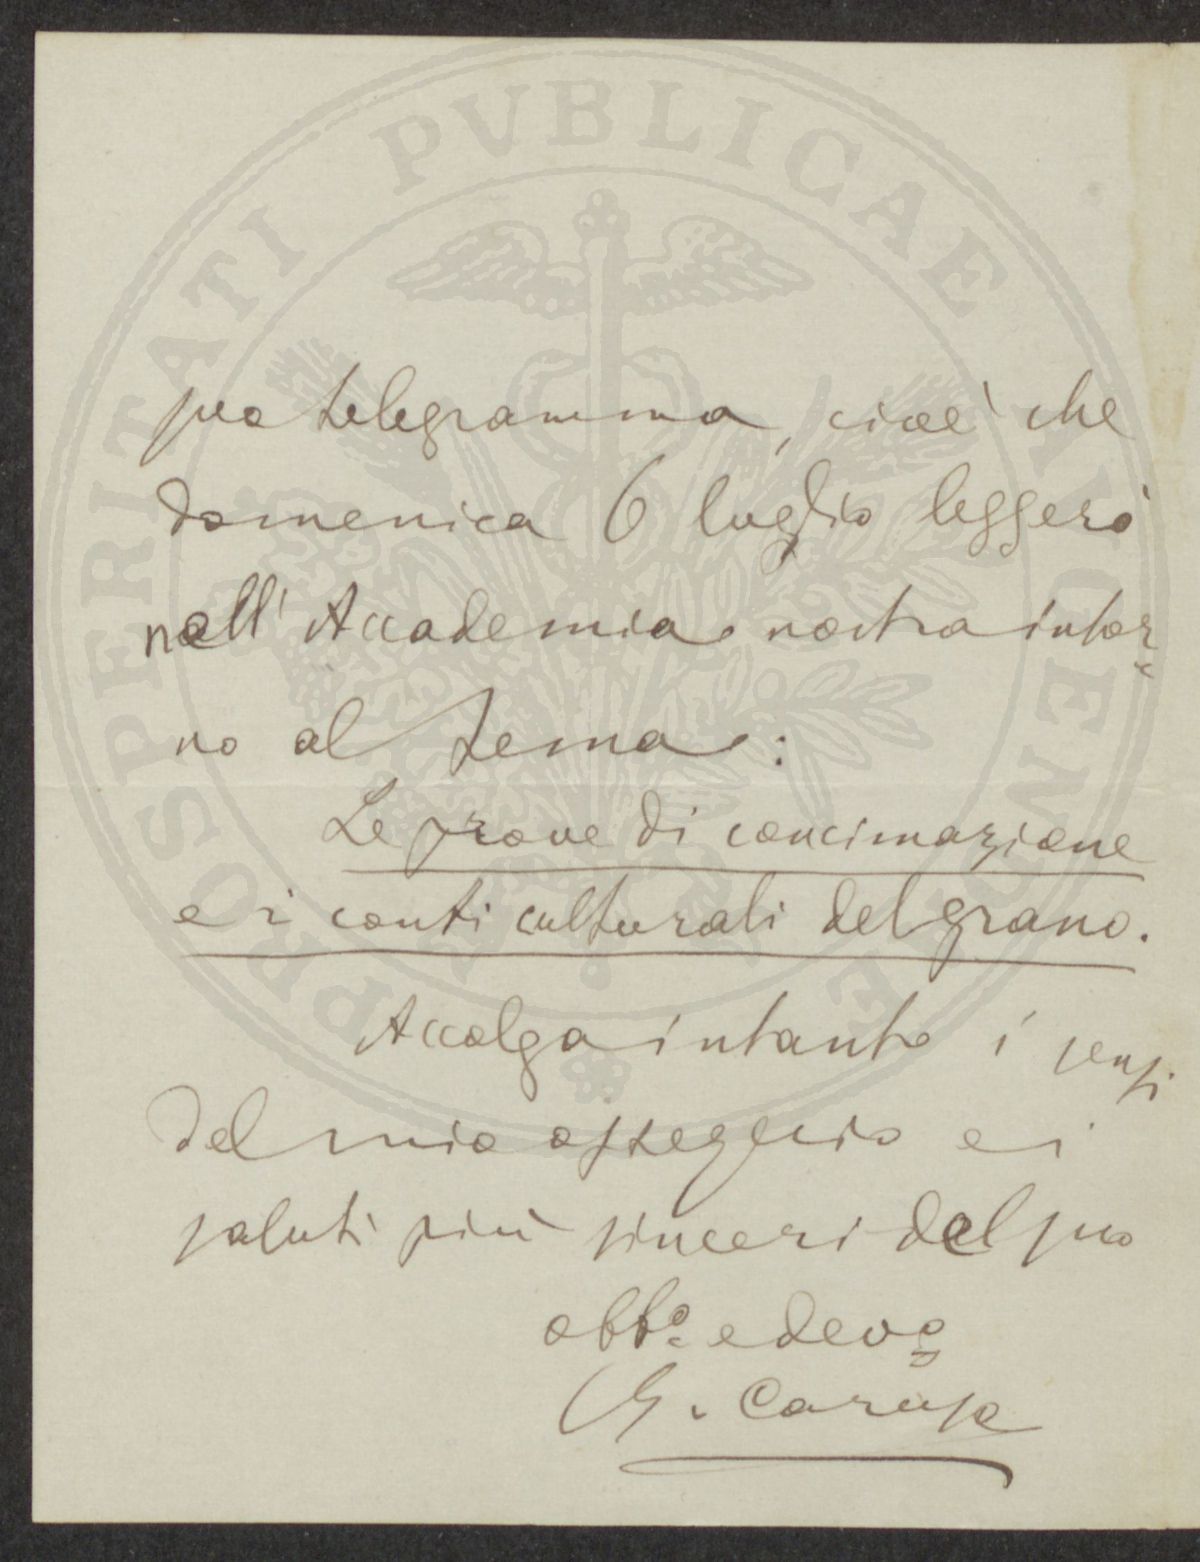 PROSPERITATI PVBLICAE AVGENDAE
suo telegramma, cioè che
domenica 6 luglio leggerò
nell'Accademia nostra intor-
no al tema:
Le prove di concimazione
e i conti culturali del grano.
Accolga intanto i sensi
del mio ossequio e i
saluti più sinceri del suo
obb.o e devo
G. Caruso